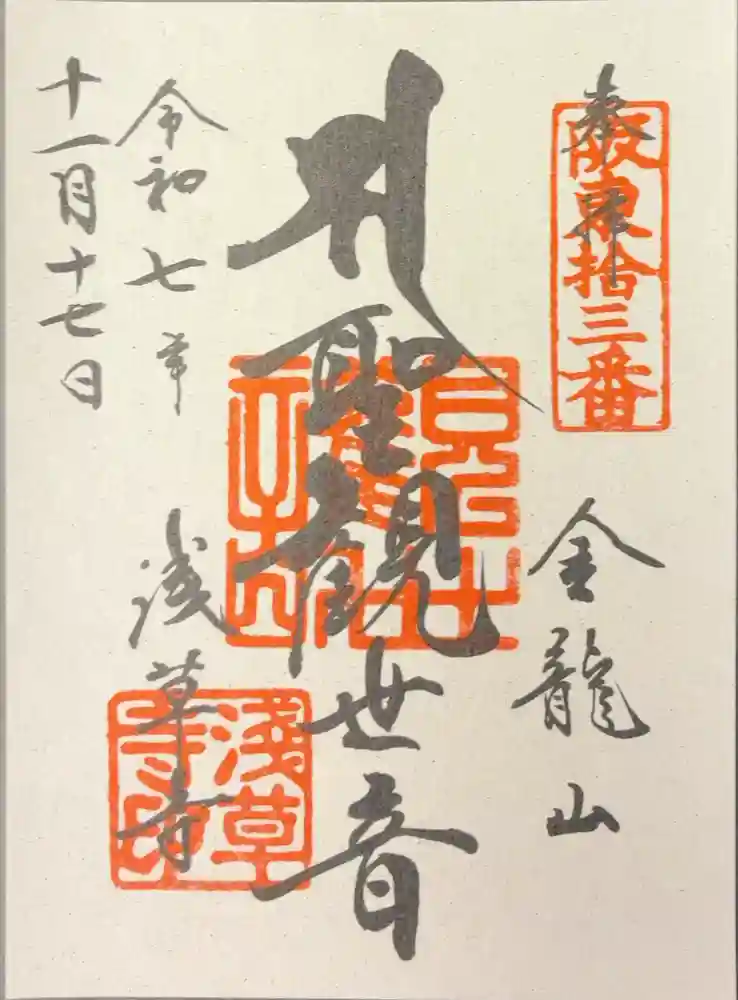 奉拝
阪東拾三番
金龍山
聖観世音
浅草寺
淺草寺印
令和七年
十一月十七日